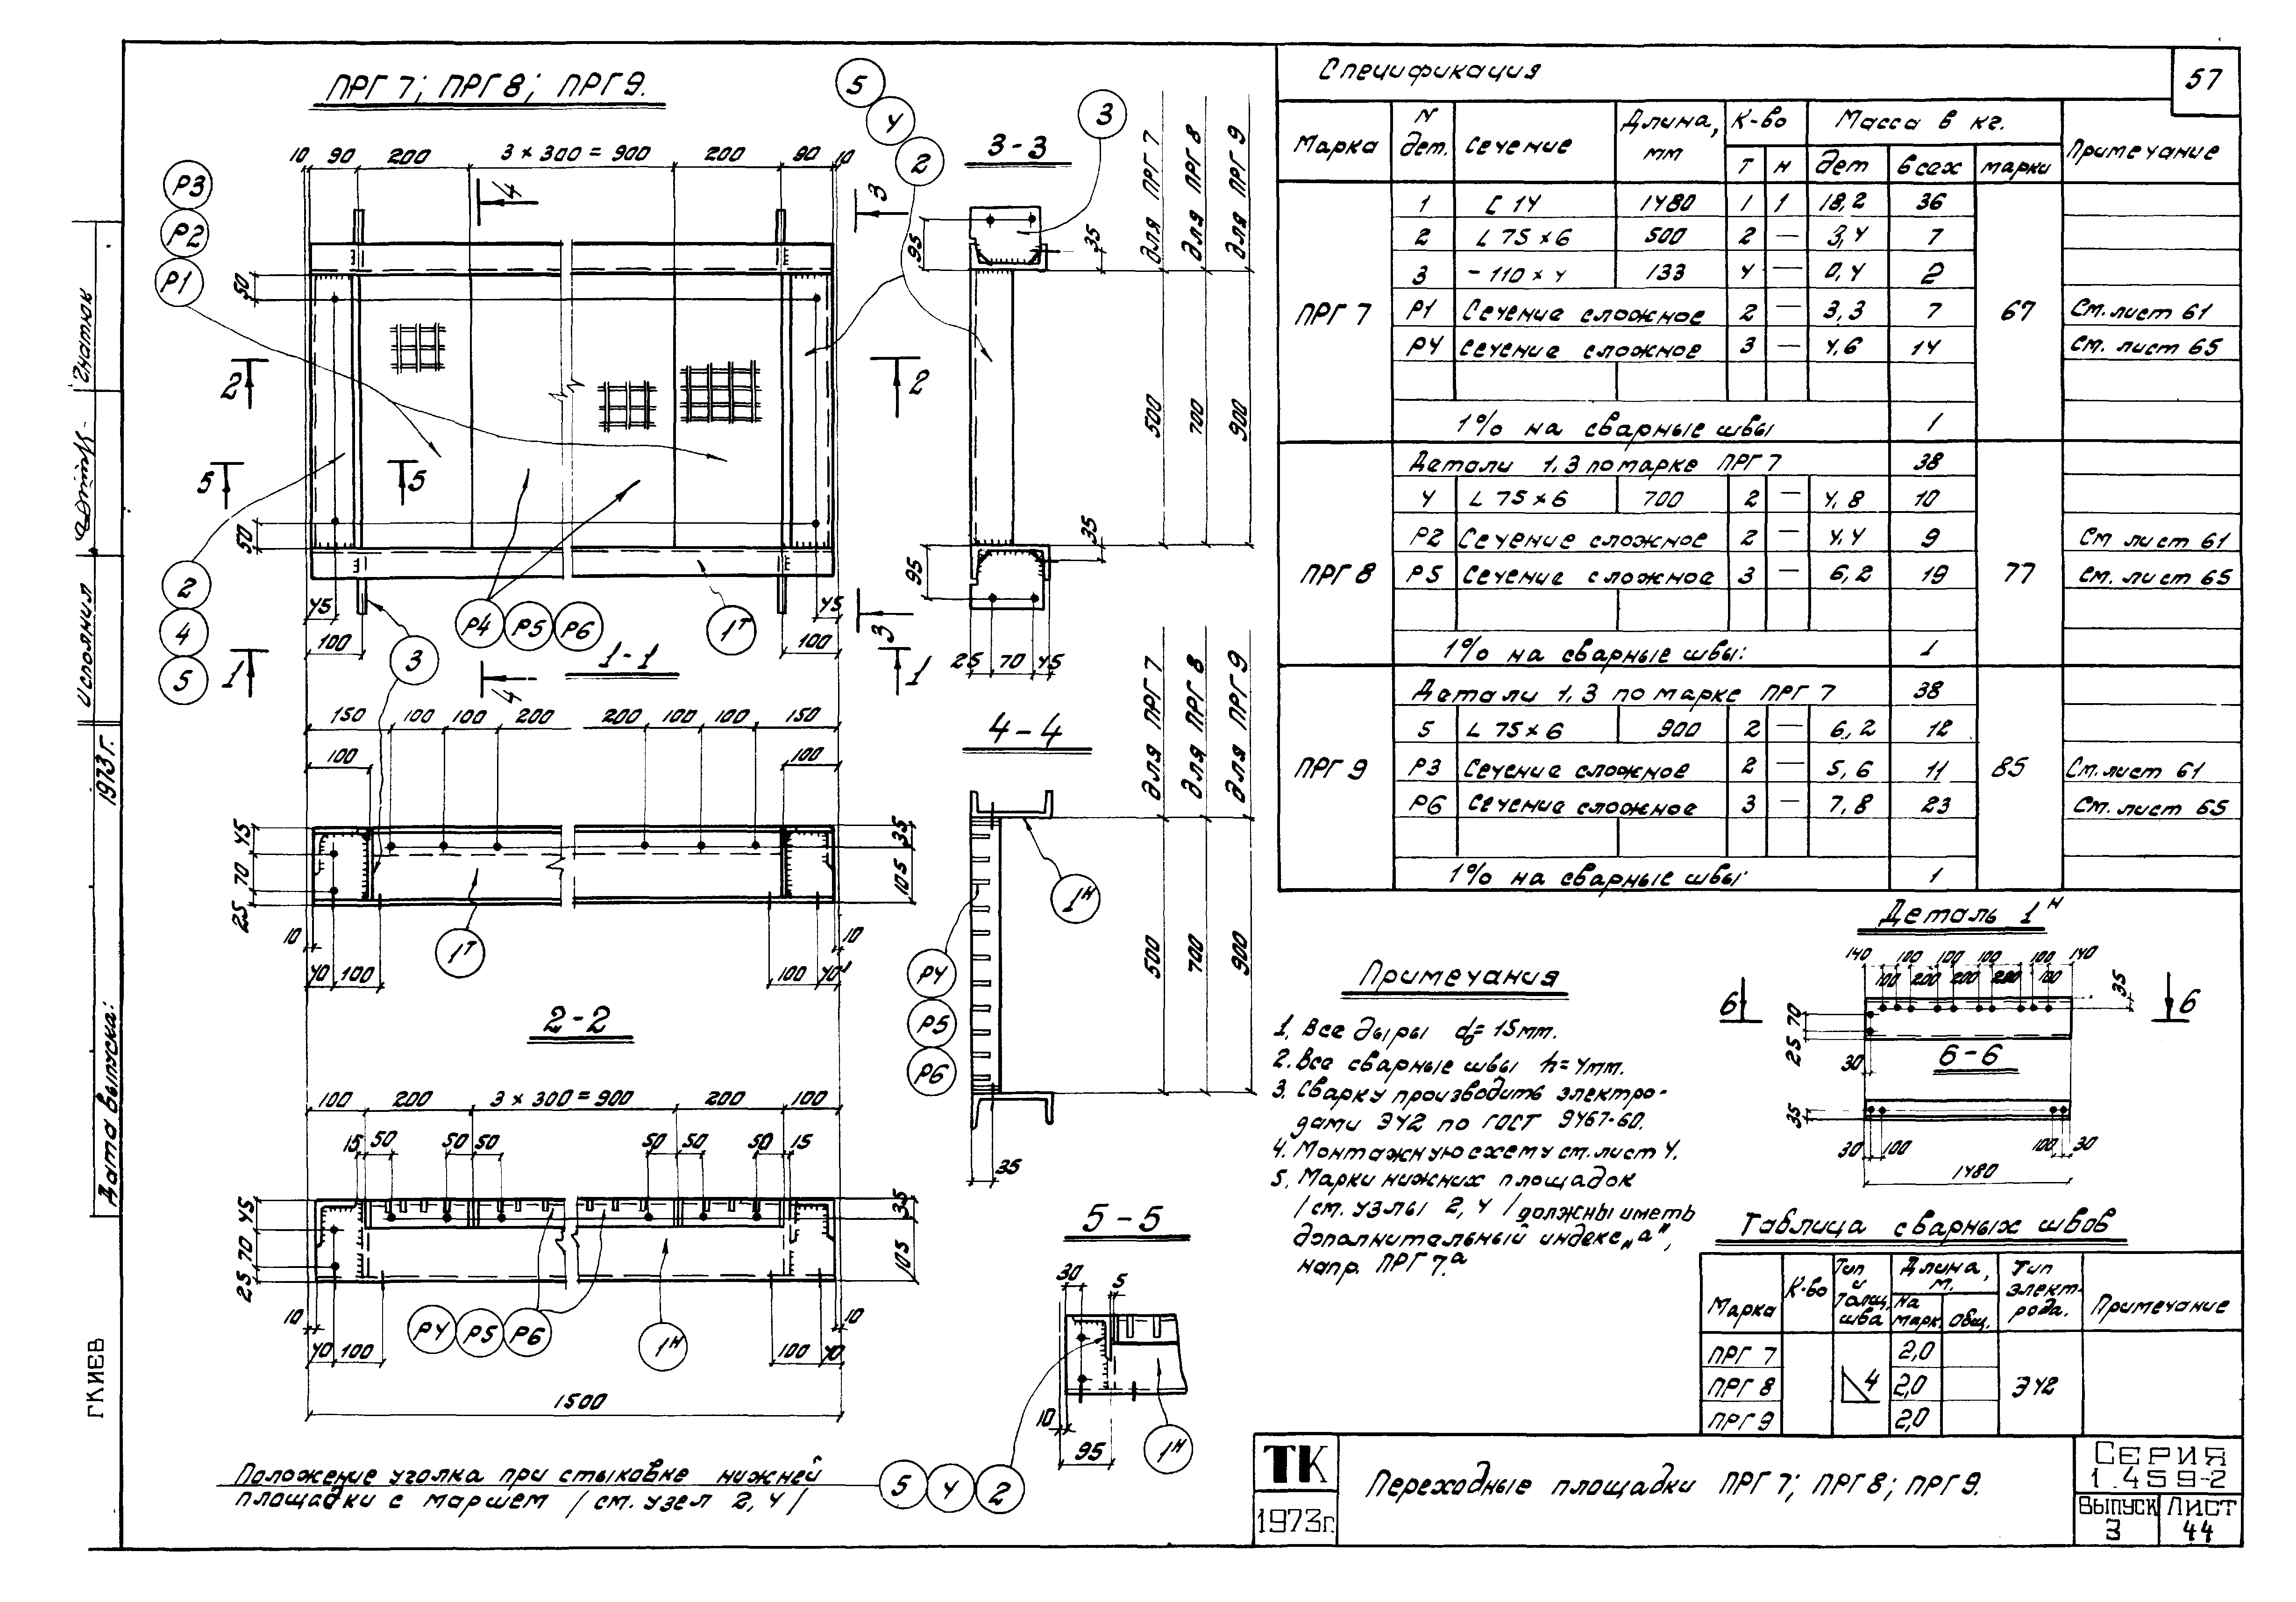 ПРГ 7; ПРГ 8; ПРГ 9.
10 90 200 3 × 300 = 900 200 90 10
Р3
Р2
Р1
5
4
2
3
50
50
2 2
5 5
4
3
45 45
100 100
2
4
5
1 1
3
Р4 Р5 Р6
1Т
3
4
3-3
для ПРГ 7
для ПРГ 8
для ПРГ 9
95
35
500
700
900
35
95
25 70 45
1-1
150 100 100 200 200 100 100 150
100 100
45
70
25
35
105
10 10
40 100 100 40
1Т
4-4
для ПРГ 7
для ПРГ 8
для ПРГ 9
1Н
Р4
Р5
Р6
500
700
900
35
2-2
100 200 3 × 300 = 900 200 100
15 50 50 50 50 50 50 15
45
70
25
35
105
10 10
40 100 100 40
Р4 Р5 Р6
1Н
1500
5-5
30 5
10
95
1Н
Положение уголка при стыковке нижней
площадки с маршем / см. узел 2, 4 /
5 4 2
Спецификация
57
Марка N дет. Сечение Длина, мм К-во Масса в кг. Примечание
Т Н дет всех марки
ПРГ 7 67
1 [ 14 1480 1 1 18,2 36
2 L 75 × 6 500 2 — 3,4 7
3 - 110 × 4 133 4 — 0,4 2
Р1 Сечение сложное 2 — 3,3 7 См. лист 61
Р4 Сечение сложное 3 — 4,6 14 См. лист 65
1% на сварные швы 1
ПРГ 8 77
Детали 1, 3 по марке ПРГ 7 38
4 L 75 × 6 700 2 — 4,8 10
Р2 Сечение сложное 2 — 4,4 9 См лист 61
Р5 Сечение сложное 3 — 6,2 19 См. лист 65
1% на сварные швы: 1
ПРГ 9 85
Детали 1, 3 по марке ПРГ 7 38
5 L 75 × 6 900 2 — 6,2 12
Р3 Сечение сложное 2 — 5,6 11 См. лист 61
Р6 Сечение сложное 3 — 7,8 23 См. лист 65
1% на сварные швы. 1
Примечания
1. Все дыры d₀= 15 мм.
2. Все сварные швы h = 4мм.
3. Сварку производить электро-
дами Э42 по ГОСТ 9467-60.
4. Монтажную схему см. лист 4.
5. Марки нижних площадок
/ см. узлы 2, 4 / должны иметь
дополнительный индекс „а",
напр. ПРГ 7.а
Деталь 1Н
140 100 100 100 100 140
100 200 200 200 100
35
6 6
70
25
30
6-6
35
30 100 100 30
1480
Таблица сварных швов
Марка К-во Тип и толщ. шва Длина, м. Тип электрода. Примечание
На марк. Общ.
ПРГ 7 2,0
ПРГ 8 4 2,0 Э42
ПРГ 9 2,0
ТК
1973г.
Переходные площадки ПРГ 7; ПРГ 8; ПРГ 9.
СЕРИЯ
1.459-2
ВЫПУСК ЛИСТ
3 44
Исполнил Гнатюк
Дата выпуска: 1973 г.
Г КИЕВ